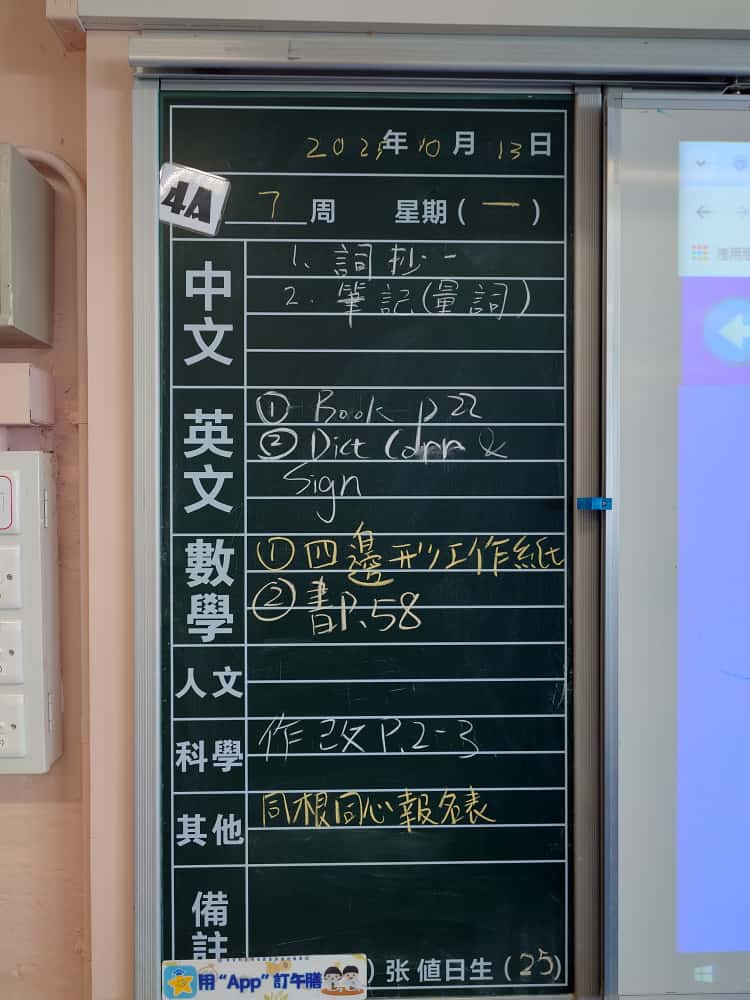 2025年10月13日
4A
7周 星期(一)
中文
1. 詞抄一
2. 筆記(量詞)
英文
① Book p22
② Dict Corr &
Sign
數學
① 四邊形工作紙
② 書P.58
人文
科學
作改P.2-3
其他
同根同心報名表
備註
)张 值日生(25)
用“App”訂午膳